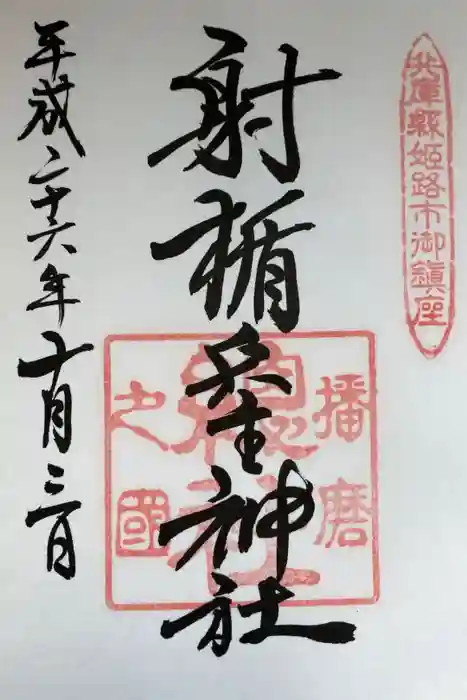 兵庫縣姫路市御鎮座
射楯兵主神社
播磨
総社
之國
平成二十六年十月三日